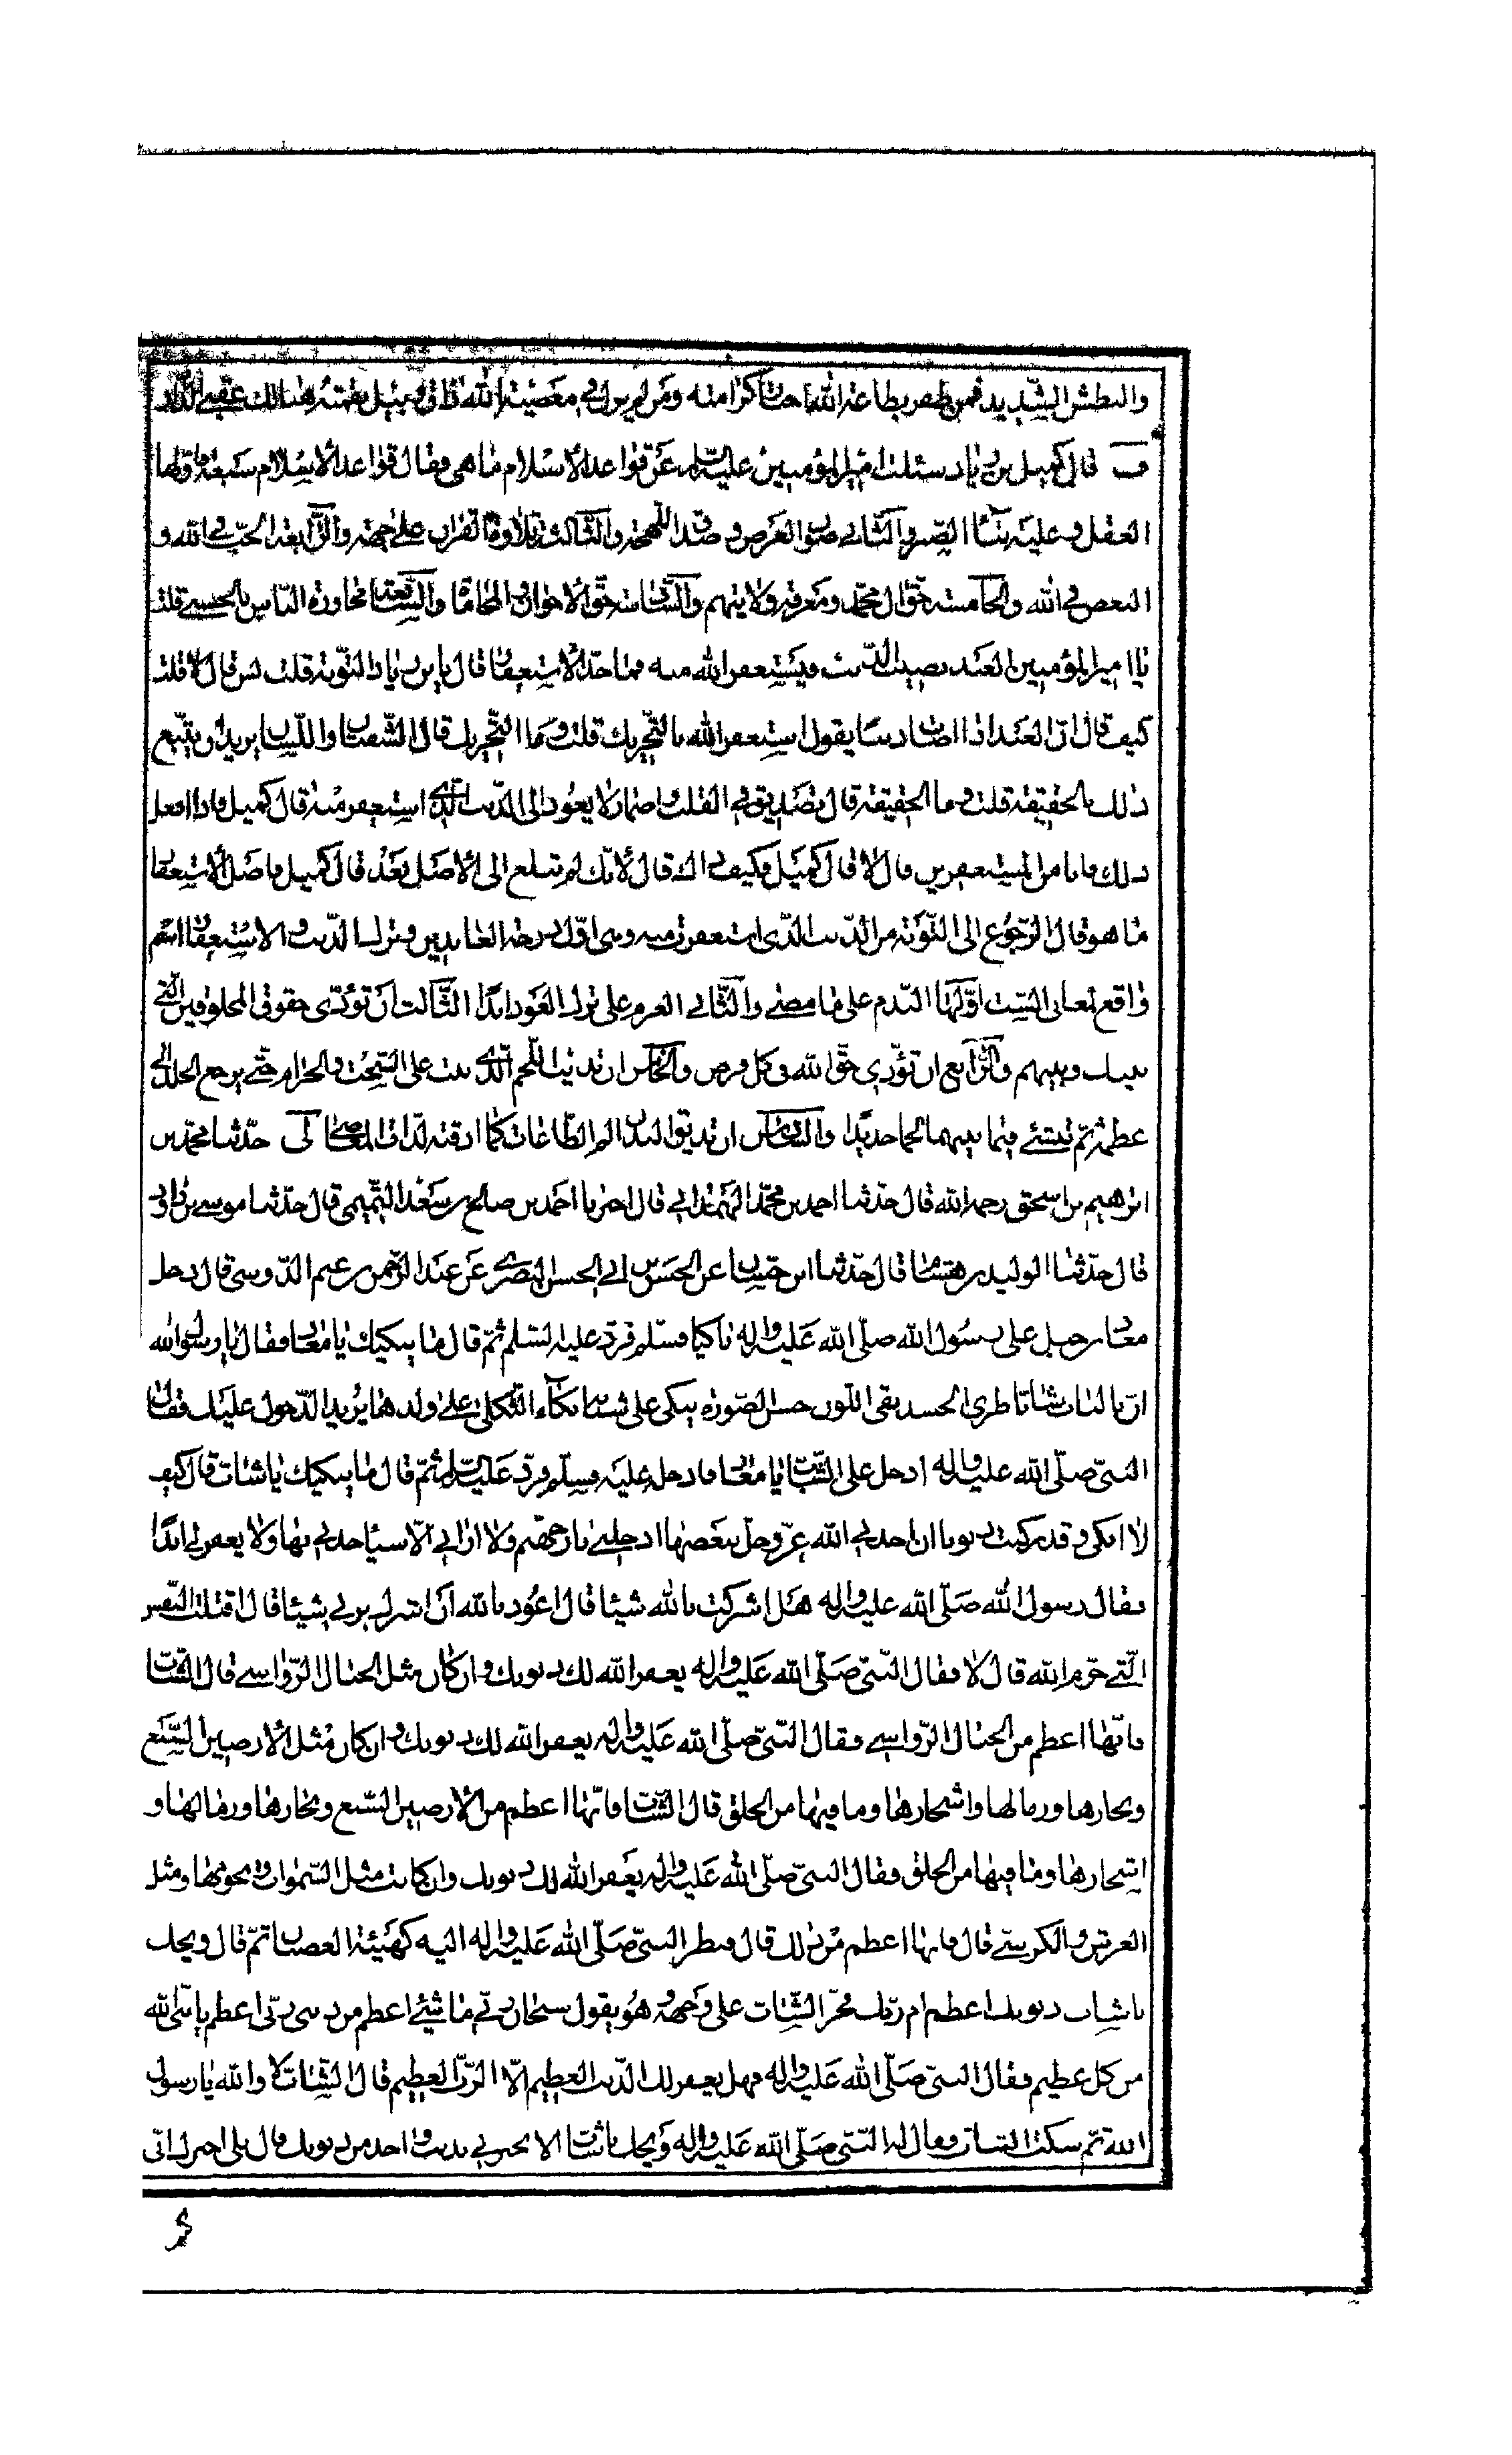 والبطش الشديد فمن ظفر بطاعة الله اجتاب كرامته ومن لم يزل في معصية الله ذاق وبيل نقمته هنالك عقبى الدار
ف قال كميل بن زياد سئلت امير المؤمنين عليه السلم عن قواعد الاسلام ما هي فقال قواعد الاسلام سبعة فاولها
العقل وعليه بنى الصبر والثاني صون العرض وصدق اللهجة والثالثة تلاوة القران على جهته والرابعة الحب في الله و
البغض في الله والخامسة حق ال محمد ومعرفة ولايتهم والسادسة حق الاخوان والمحاماة والسابعة مجاورة الناس بالحسنى قلت
يا امير المؤمنين العبد يصيب الذنب فيستغفر الله منه فما حد الاستغفار قال يا بن زياد التوبة قلت بس قال لا قلت
كيف قال ان العبد اذا اصاب ذنبا يقول استغفر الله بالتحريك قلت وما التحريك قال الشفتان واللسان يريد ان يتبع
ذلك بالحقيقة قلت وما الحقيقة قال تصديق في القلب واضمار لا يعود الى الذنب الذي استغفر منه قال كميل فاذا فعل
ذلك فانا من المستغفرين قال لا قال كميل وكيف ذاك قال لانك لم تبلغ الى الاصل بعد قال كميل فاصل الاستغفار
ما هو قال الرجوع الى التوبة من الذنب الذي استغفرت منه وهي اول درجة العابدين وترك الذنب والاستغفار اسم
واقع لمعان الست اولها الندم على ما مضى والثاني العزم على ترك العود ابدا الثالث ان تؤدى حقوق المخلوقين التي
بينك وبينهم والرابع ان تؤدي حق الله في كل فرض والخامس ان تذيب اللحم الذي نبت على السحت والحرام حتى يرجع الجلد الى
عظمه ثم تنشئ فيما بينهما لحما جديدا والسادس ان تذيق البدن الم الطاعات كما اذقته لذات المعاصي لى حدثنا محمد بن
ابرهيم بن اسحق رحمه الله قال حدثنا احمد بن محمد الهمداني قال اخبرنا احمد بن صالح بن سعد التميمي قال حدثنا موسى بن داود
قال حدثنا الوليد بن هشام قال حدثنا ابن حسان عن الحسن بن ابي الحسن البصري عن عبد الرحمن بن غنم الدوسي قال دخل
معاذ بن جبل على رسول الله صلى الله عليه واله باكيا فسلم فرد عليه السلم ثم قال ما يبكيك يا معاذ فقال يا رسول الله
ان بالباب شابا طري الجسد نقى اللون حسن الصورة يبكى على شبابه بكاء الثكلى على ولدها يريد الدخول عليك فقال
النبي صلى الله عليه واله ادخل على الشاب يا معاذ فادخله عليه فسلم فرد عليه السلم ثم قال ما يبكيك يا شاب قال كيف
لا ابكى وقد ركبت ذنوبا ان اخذني الله عز وجل ببعضها ادخلنى نار جهنم ولا اراني الا سياخذني بها ولا يغفر لي ابدا
فقال رسول الله صلى الله عليه واله هل اشركت بالله شيئا قال اعوذ بالله ان اشرك بربي شيئا قال اقتلت النفس
التي حرم الله قال لا فقال النبي صلى الله عليه واله يغفر الله لك ذنوبك وان كان مثل الجبال الرواسي قال الشاب
فانها اعظم من الجبال الرواسي فقال النبي صلى الله عليه واله يغفر الله لك ذنوبك وان كان مثل الارضين السبع
وبحارها ورمالها واشجارها وما فيها من الخلق قال الشاب فانها اعظم من الارضين السبع وبحارها ورمالها و
اشجارها وما فيها من الخلق فقال النبي صلى الله عليه واله يغفر الله لك ذنوبك وان كانت مثل السموات ونجومها ومثل
العرش والكرسي قال فانها اعظم من ذلك قال فنظر النبي صلى الله عليه واله اليه كهيئة الغضبان ثم قال ويحك
يا شاب ذنوبك اعظم ام ربك فخر الشاب على وجهه وهو يقول سبحان ربي ما شئ اعظم من ربي ربى اعظم يا نبي الله
من كل عظيم فقال النبي صلى الله عليه واله فهل يغفر لك الذنب العظيم الا الرب العظيم قال الشاب لا والله يا رسول
الله ثم سكت الشاب فقال له النبي صلى الله عليه واله ويحك يا شاب الا تخبرني بذنب واحد من ذنوبك قال بلى اخبرك انى